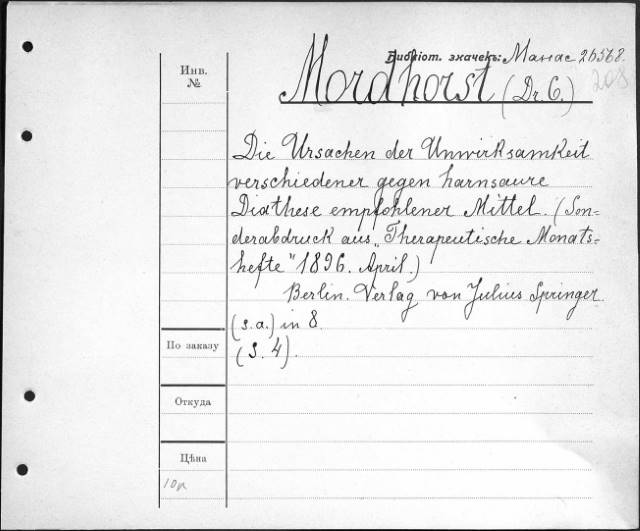 Библіот. значекъ: Манас 26568.
208
Инв.
№
Mordhorst (Dr. C.)
Die Ursachen der Unwirksamkeit
verschiedener gegen harnsaure
Diathese empfohlener Mittel. (Son-
derabdruck aus „Therapeutische Monats-
hefte" 1896. April.)
Berlin. Verlag von Julius Springer.
(s. a.) in 8.
По заказу
(S. 4).
Откуда
Цѣна